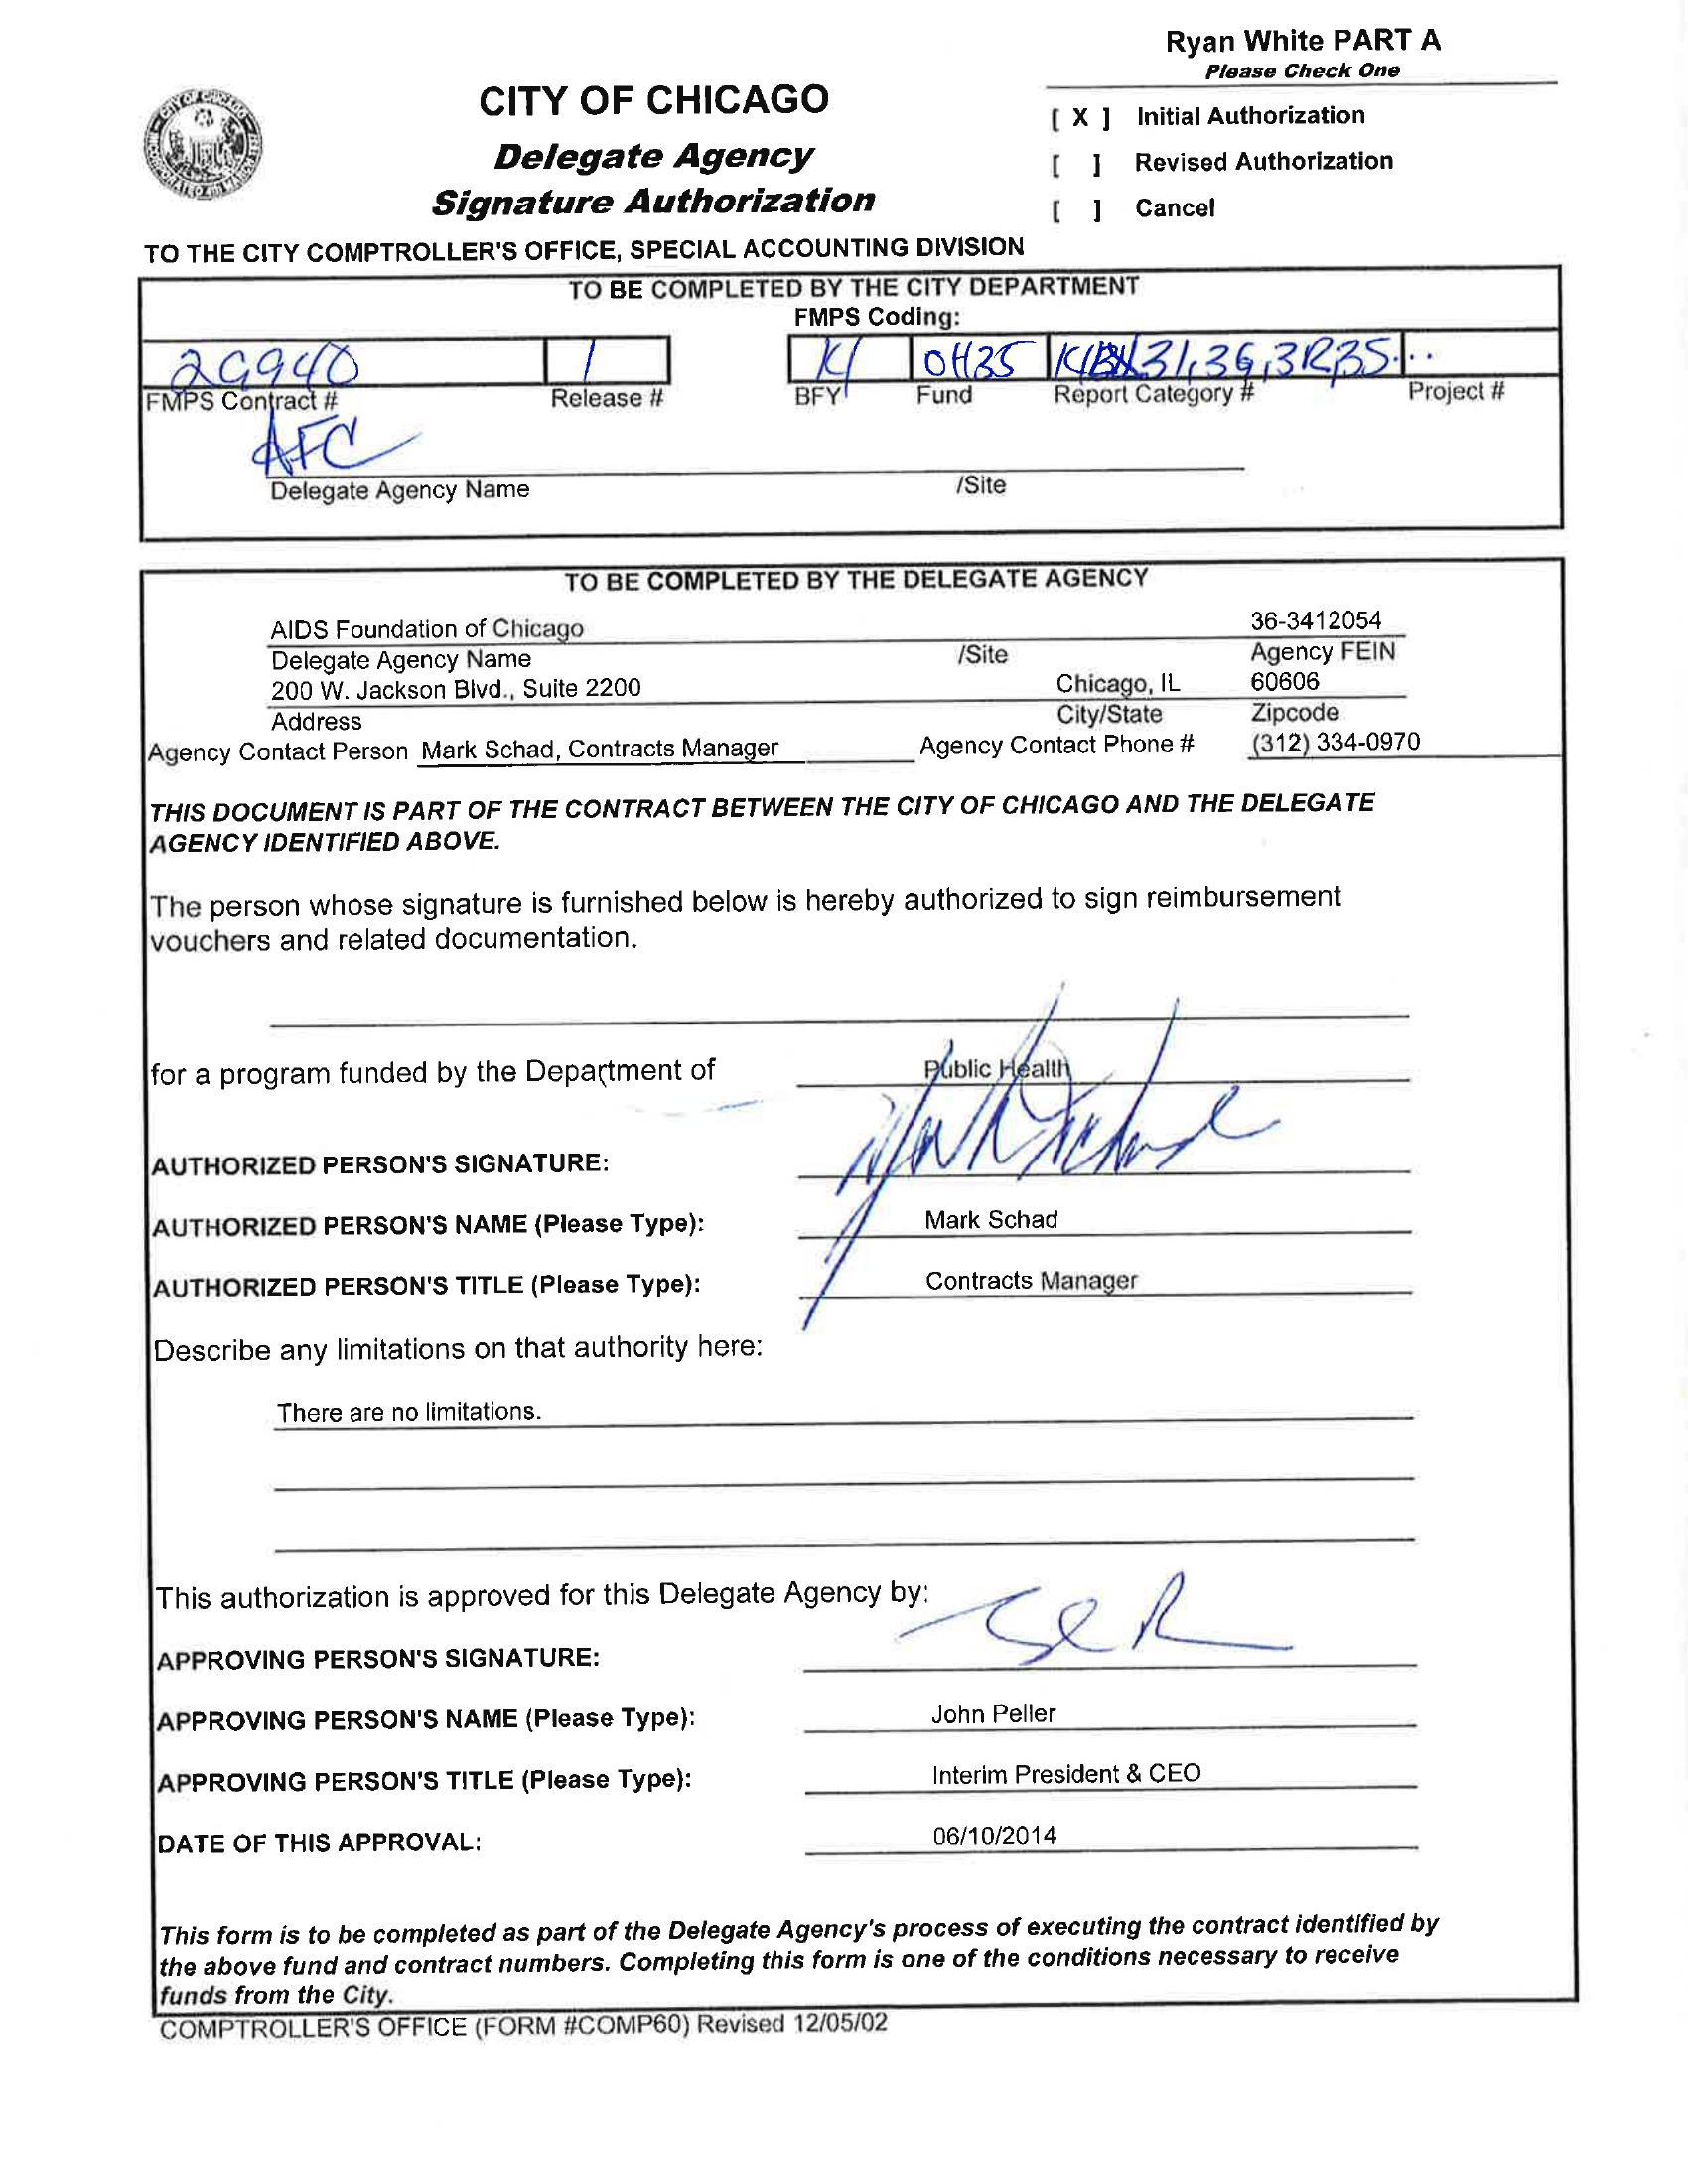 Ryan White PART A
Please Check One
CITY OF CHICAGO
Delegate Agency
Signature Authorization
[ X ] Initial Authorization
[ ] Revised Authorization
[ ] Cancel
TO THE CITY COMPTROLLER'S OFFICE, SPECIAL ACCOUNTING DIVISION
TO BE COMPLETED BY THE CITY DEPARTMENT
FMPS Coding:
29940 1 0H35
FMPS Contract # Release # BFY Fund Report Category # Project #
AFC
Delegate Agency Name /Site
TO BE COMPLETED BY THE DELEGATE AGENCY
AIDS Foundation of Chicago 36-3412054
Delegate Agency Name /Site Agency FEIN
200 W. Jackson Blvd., Suite 2200 Chicago, IL 60606
Address City/State Zipcode
Agency Contact Person Mark Schad, Contracts Manager Agency Contact Phone # (312) 334-0970
THIS DOCUMENT IS PART OF THE CONTRACT BETWEEN THE CITY OF CHICAGO AND THE DELEGATE
AGENCY IDENTIFIED ABOVE.
The person whose signature is furnished below is hereby authorized to sign reimbursement
vouchers and related documentation.
for a program funded by the Department of Public Health
AUTHORIZED PERSON'S SIGNATURE:
AUTHORIZED PERSON'S NAME (Please Type): Mark Schad
AUTHORIZED PERSON'S TITLE (Please Type): Contracts Manager
Describe any limitations on that authority here:
There are no limitations.
This authorization is approved for this Delegate Agency by:
APPROVING PERSON'S SIGNATURE:
APPROVING PERSON'S NAME (Please Type): John Peller
APPROVING PERSON'S TITLE (Please Type): Interim President & CEO
DATE OF THIS APPROVAL: 06/10/2014
This form is to be completed as part of the Delegate Agency's process of executing the contract identified by
the above fund and contract numbers. Completing this form is one of the conditions necessary to receive
funds from the City.
COMPTROLLER'S OFFICE (FORM #COMP60) Revised 12/05/02